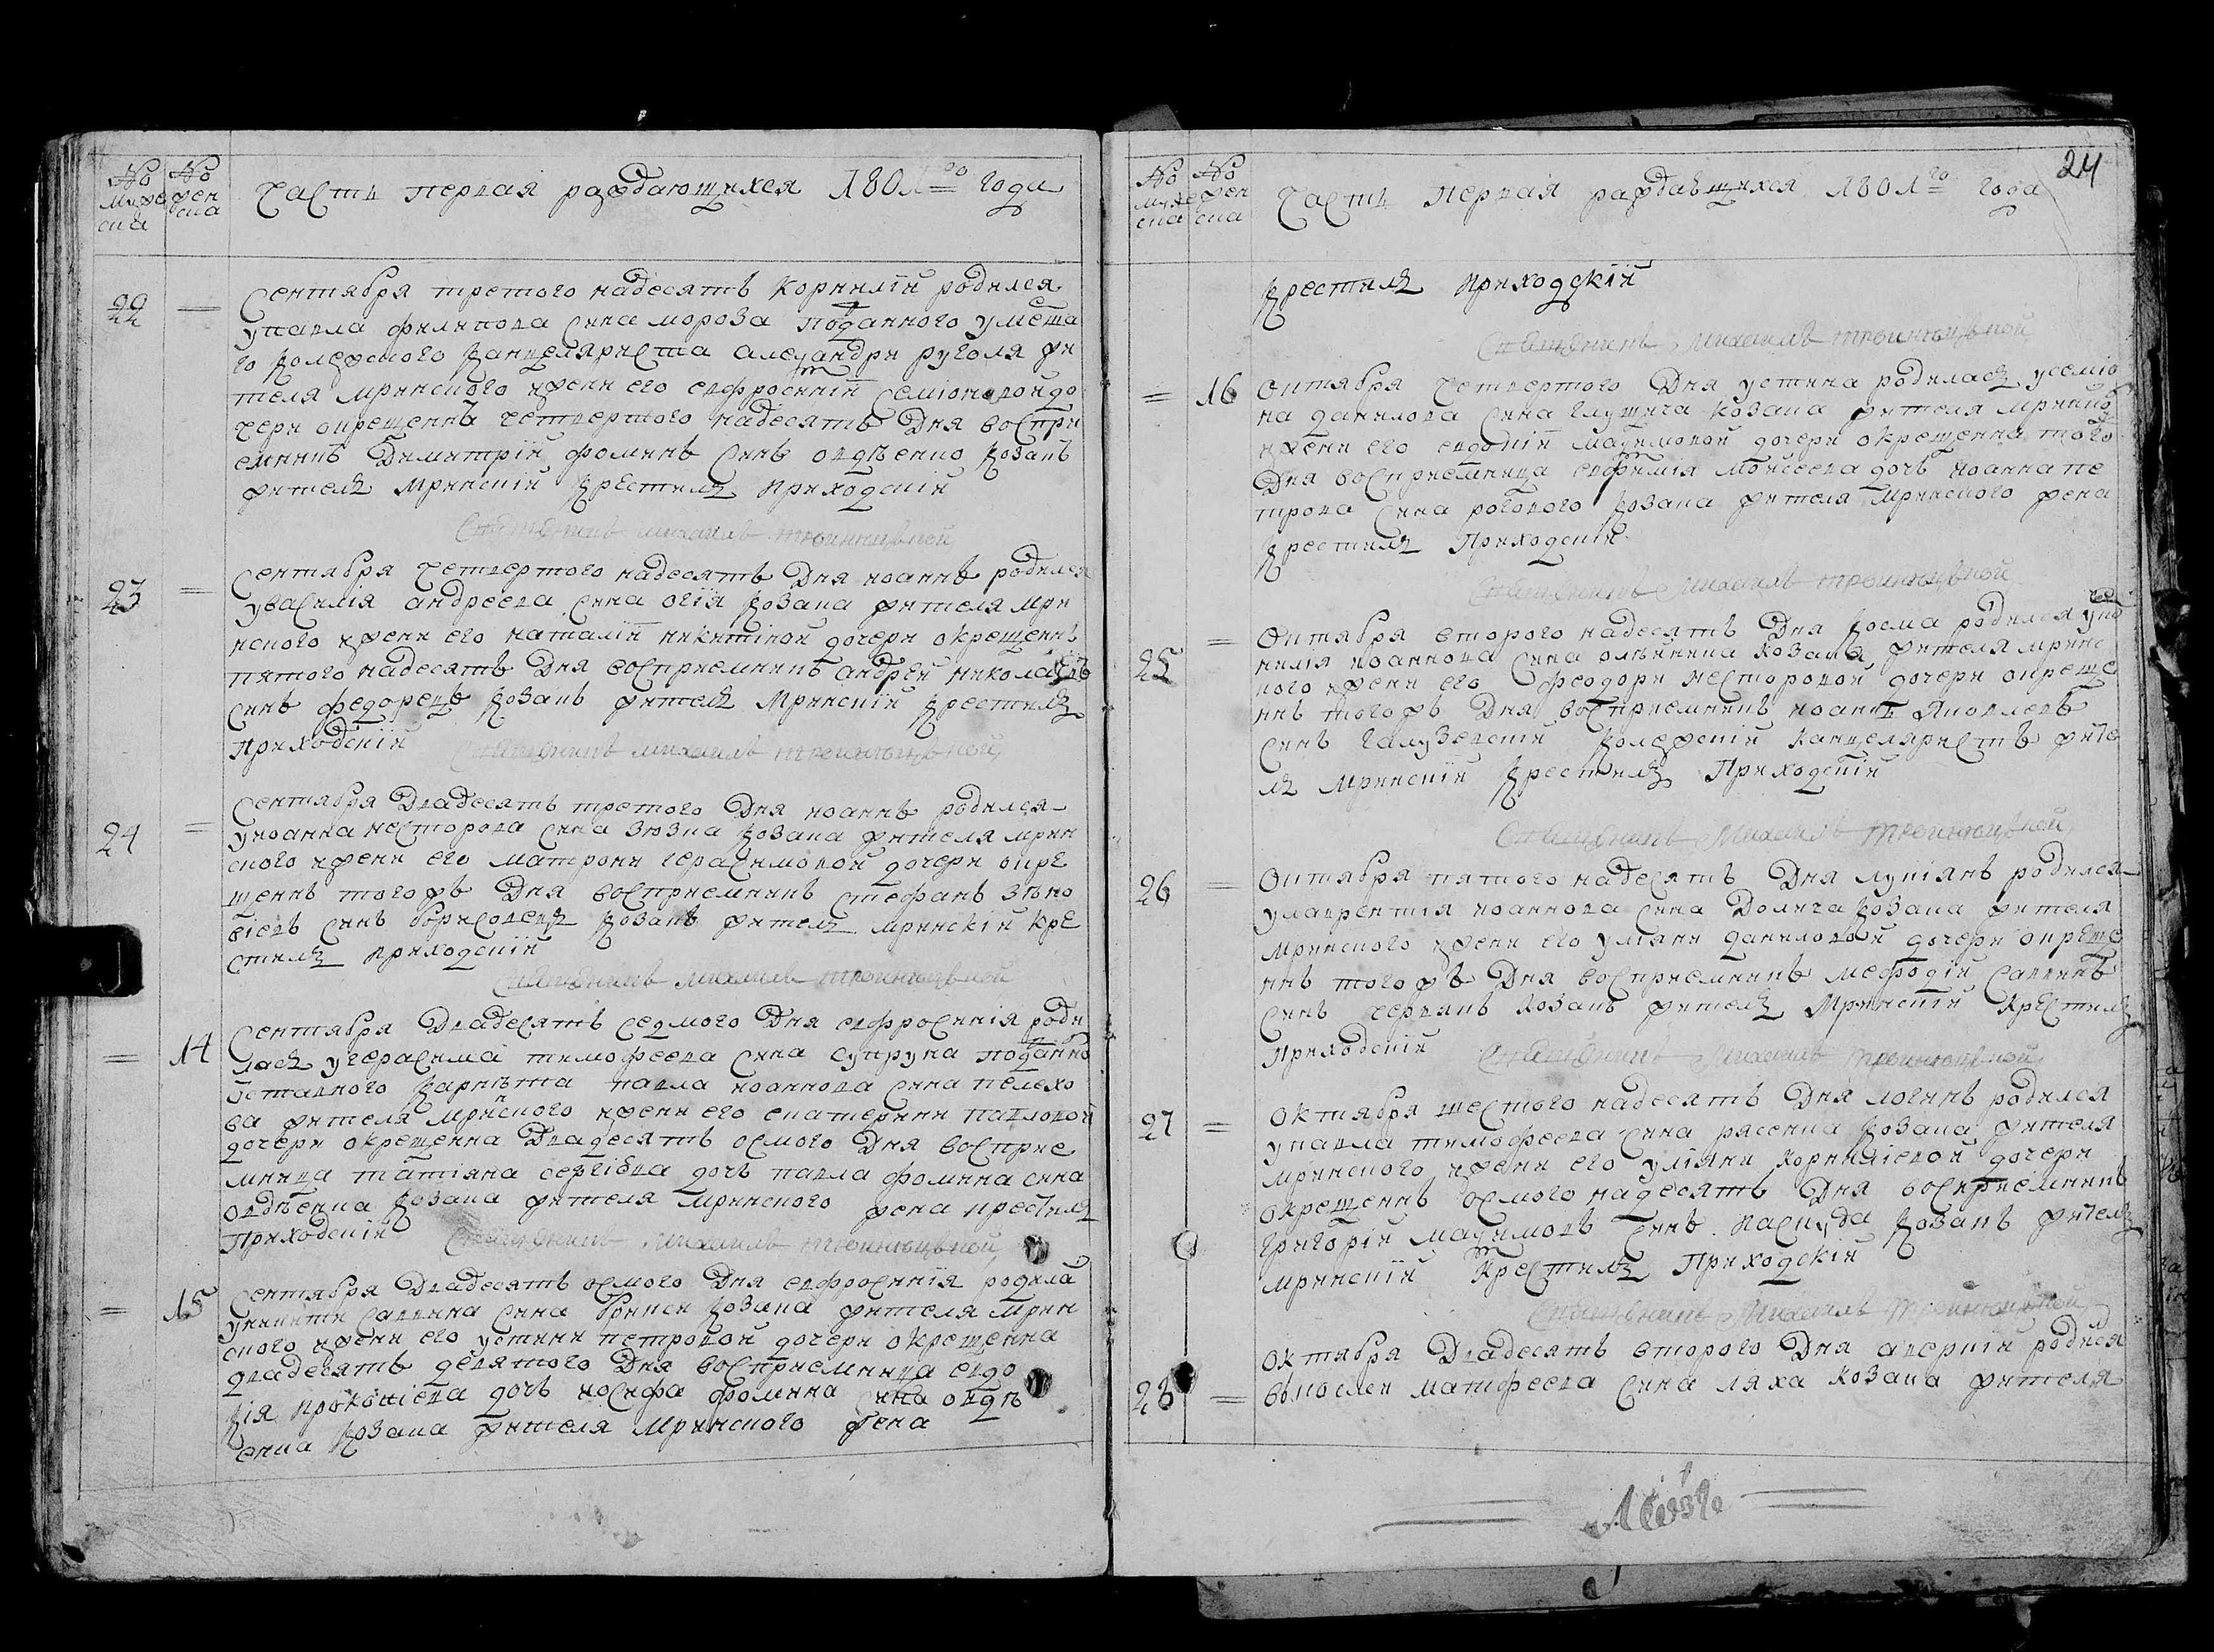 № Мужеска
№ Женска
Часть первая раждающихся 1801го года
22 =
Сентября третого надесять Корнилій родился
у павла филипова сина мороза поданного умерша
го колежского канцеляриста александри руголя жи
теля мринского и жени его евфросинiй семіоновой до
чери окрещенъ четвертого надесять Дня воспри
емникъ Димитрій фоминъ синъ овдѣенко козакъ
житель мринскій крестилъ приходскій
Священникъ михаилъ
23 =
Сентября четвертого надесять Дня иоаннъ родился
у василія андреева сина огія козака жителя мри
нского и жени его наталій никитіной дочери окрещенъ
пятого надесять Дня восприемникъ андрей николаевъ
синъ федорець козакъ житель мринскій крестилъ
приходскій Священникъ михаилъ
24 =
Сентября двадесять третого Дня иоаннъ родился
у иоанна несторова сина зюзка козака жителя мрин
ского и жени его матрони герасимовой дочери окре
щенъ того жъ Дня восприемникъ стефанъ зѣно
віевъ синъ борисовець козакъ житель мринскій кре
стилъ приходскій
Священникъ михаилъ
= 14
Сентября двадесять седмого Дня евфросинія роди
лась у герасима тимофеева сина супруна поданно
оставного карнѣта павла иоаннова сина пелехо
ва жителя мринского и жени его екатерини павловой
дочери окрещенна двадесять осмого Дня восприе
мница татіяна сергіева дочъ павла фомина сина
овдѣенка козака жителя мринского жена крестилъ
приходскій Священникъ михаилъ
= 15
Сентября двадесять осмого Дня евфросинія родила
у никити саввина сина козака жителя мрин
ского и жени его устини петровой дочери окрещенна
двадесять девятого Дня восприемница евдо
кія прокопіева дочъ иосифа фомина сина овдѣ
енка козака жителя мринского жена
24
№ мужеска
№ женска
Часть первая раждающихся 1801го года
крестилъ приходскій
Священникъ михаилъ
= 16
Октября четвертого Дня устина родилась у семіо
на данилова сина глущича козака жителя мринско
и жени его евдокій маѯимовой дочери окрещенна того
Дня восприемница евфимія моисеева дочъ иоанна пе
трова сина рогового козака жителя мринского жена
крестилъ приходскій
Священникъ михаилъ
25 =
Октября второго надесять Дня косма родился у ко
рнилія иоаннова сина олѣйника козака жителя мринс
кого и жени его феодори несторовой дочери окреще
нъ того жъ Дня восприемникъ иоаннъ яковлевъ
синъ галузевскій колежскій канцеляристъ жите
ль мринскій крестилъ приходскій
Священникъ михаилъ
26 =
Октября пятого надесять Дня лукіянъ родился
у лаврентія иоаннова сина козака жителя
мринского и жени его уліяни даниловой дочери окреще
нъ того жъ Дня восприемникъ мефодій саввинъ
синъ червякъ козакъ житель мринскій крестилъ
приходскій Священникъ михаилъ
27 =
Октября шестого надесять Дня логинъ родился
у павла тимофеева сина рясенка козака жителя
мринского и жени его уліяни корниліевой дочери
окрещенъ осмого надесять Дня восприемникъ
григорій маѯимовъ синъ козакъ житель
мринскій крестилъ приходскій
Священникъ михаилъ
28 =
Октября двадесять второго Дня аверкій родился
алексѣя матфеева сина ляха козака жителя